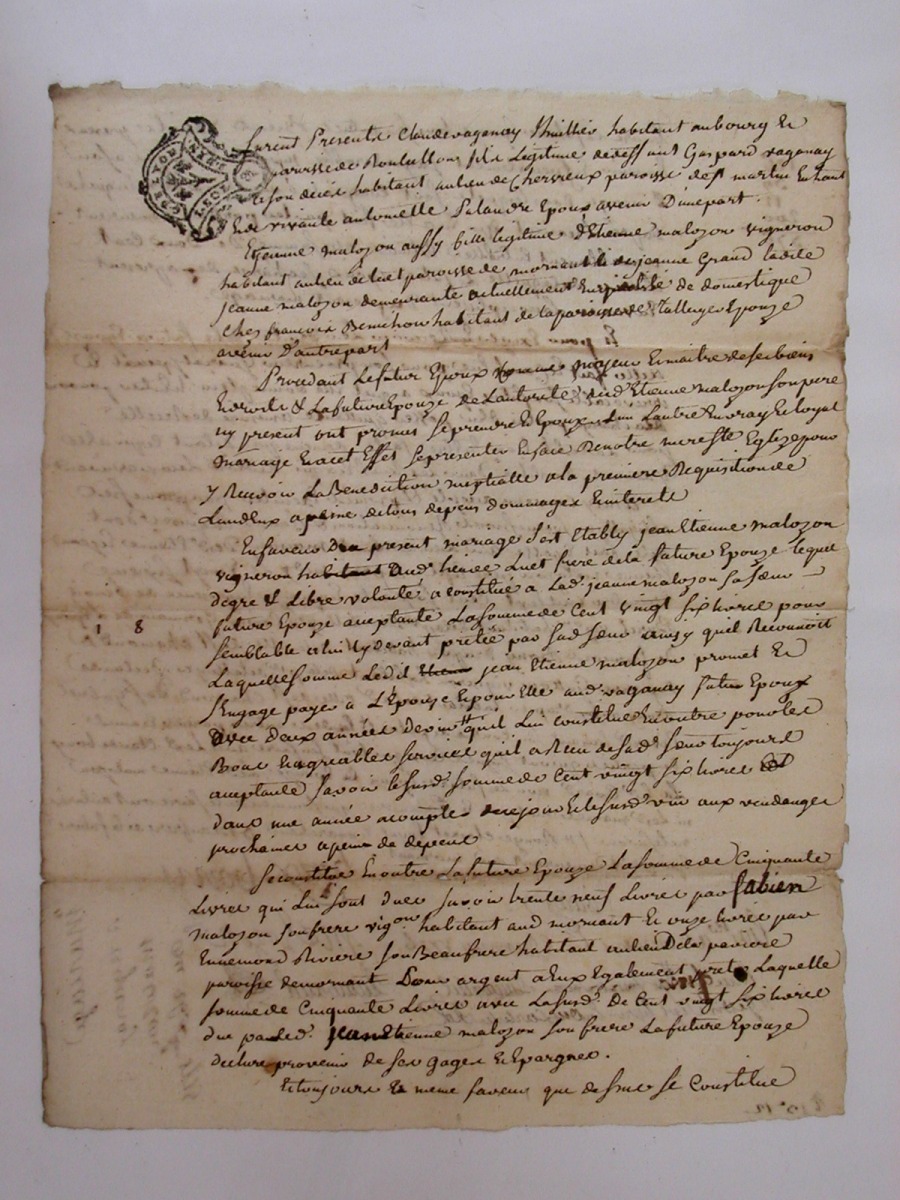 furent Presents Claude vaganay thuillier habitant au bourg Et
parroisse de Rontallon fils Legitime de deffunt Gaspard vaganay
De son vivant habitant au lieu de Chevreux paroisse de st martin En haut
Et de vivante antoinette Palandre Epoux avenir D'unepart.
Et jeanne malozon aussy fille legitime d'Etienne malozon vigneron
habitant au lieu de et paroisse de mornant Et de jeanne Grand ladite
jeanne malozon demeurante actuellement En qualité de domestique
Ches francois Benichon habitant de la paroisse de Talluye Epouze
avenir D'autrepart
Procedant Le futur Epoux comme majeur Et maitre de ses biens
Et droits & La future Epouze de L'autorité dud. Etienne malozon son pere
icy present ont promis se prendre Et Epouzer L'un L'autre En vray Et loyal
mariage Et a cet Effet se presenter En face De notre mere Ste Eglize pour
y Recevoir La Benediction nuptialle a la premiere Requisition de
L'un deux a peine de tous depens dommages Et interets
En faveur Du present mariage s'est Etably jean Etienne malozon
vigneron habitant aud. lieu Et frere de la future Epouze lequel
de gré & Libre volonté a constitué a Lad. jeanne malozon sa sœur
future Epouze acceptante La somme de Cent vingt six livres pour
semblable a luy cy devant pretée par sad. sœur ainsy qu'il Reconnoit
Laquelle somme Ledit jean Etienne malozon promet Et
s'Engage payer a L'Epouze Et pour Elle aud. vaganay futur Epoux
avec deux années de vin qu'il Lui constitue En outre pour les
Bons Et agreables services qu'il a Recu de sad. sœur toujours
acceptante savoir lesusd. somme de Cent vingt six livres
dans une année a compter de ce jour Et le susd. vin aux vendanges
prochaines a peine de depens
se constitue En outre La future Epouze La somme de Cinquante
Livres qui Lui sont dues savoir trente neuf Livres par fabien
malozon son frere vigon habitant aud. mornant Et onze livres par
Ennemond Riviere son Beaufrere habitant au lieu De la
paroisse de mornant Pour argent a Eux Egalement preté Laquelle
somme de Cinquante Livres avec La susd. de Cent vingt six livres
due par led. jean Etienne malozon son frere La future Epouze
declare provenir de ses gages Et Epargnes.
Et toujours En meme faveur que dessus se Constitue
1 8